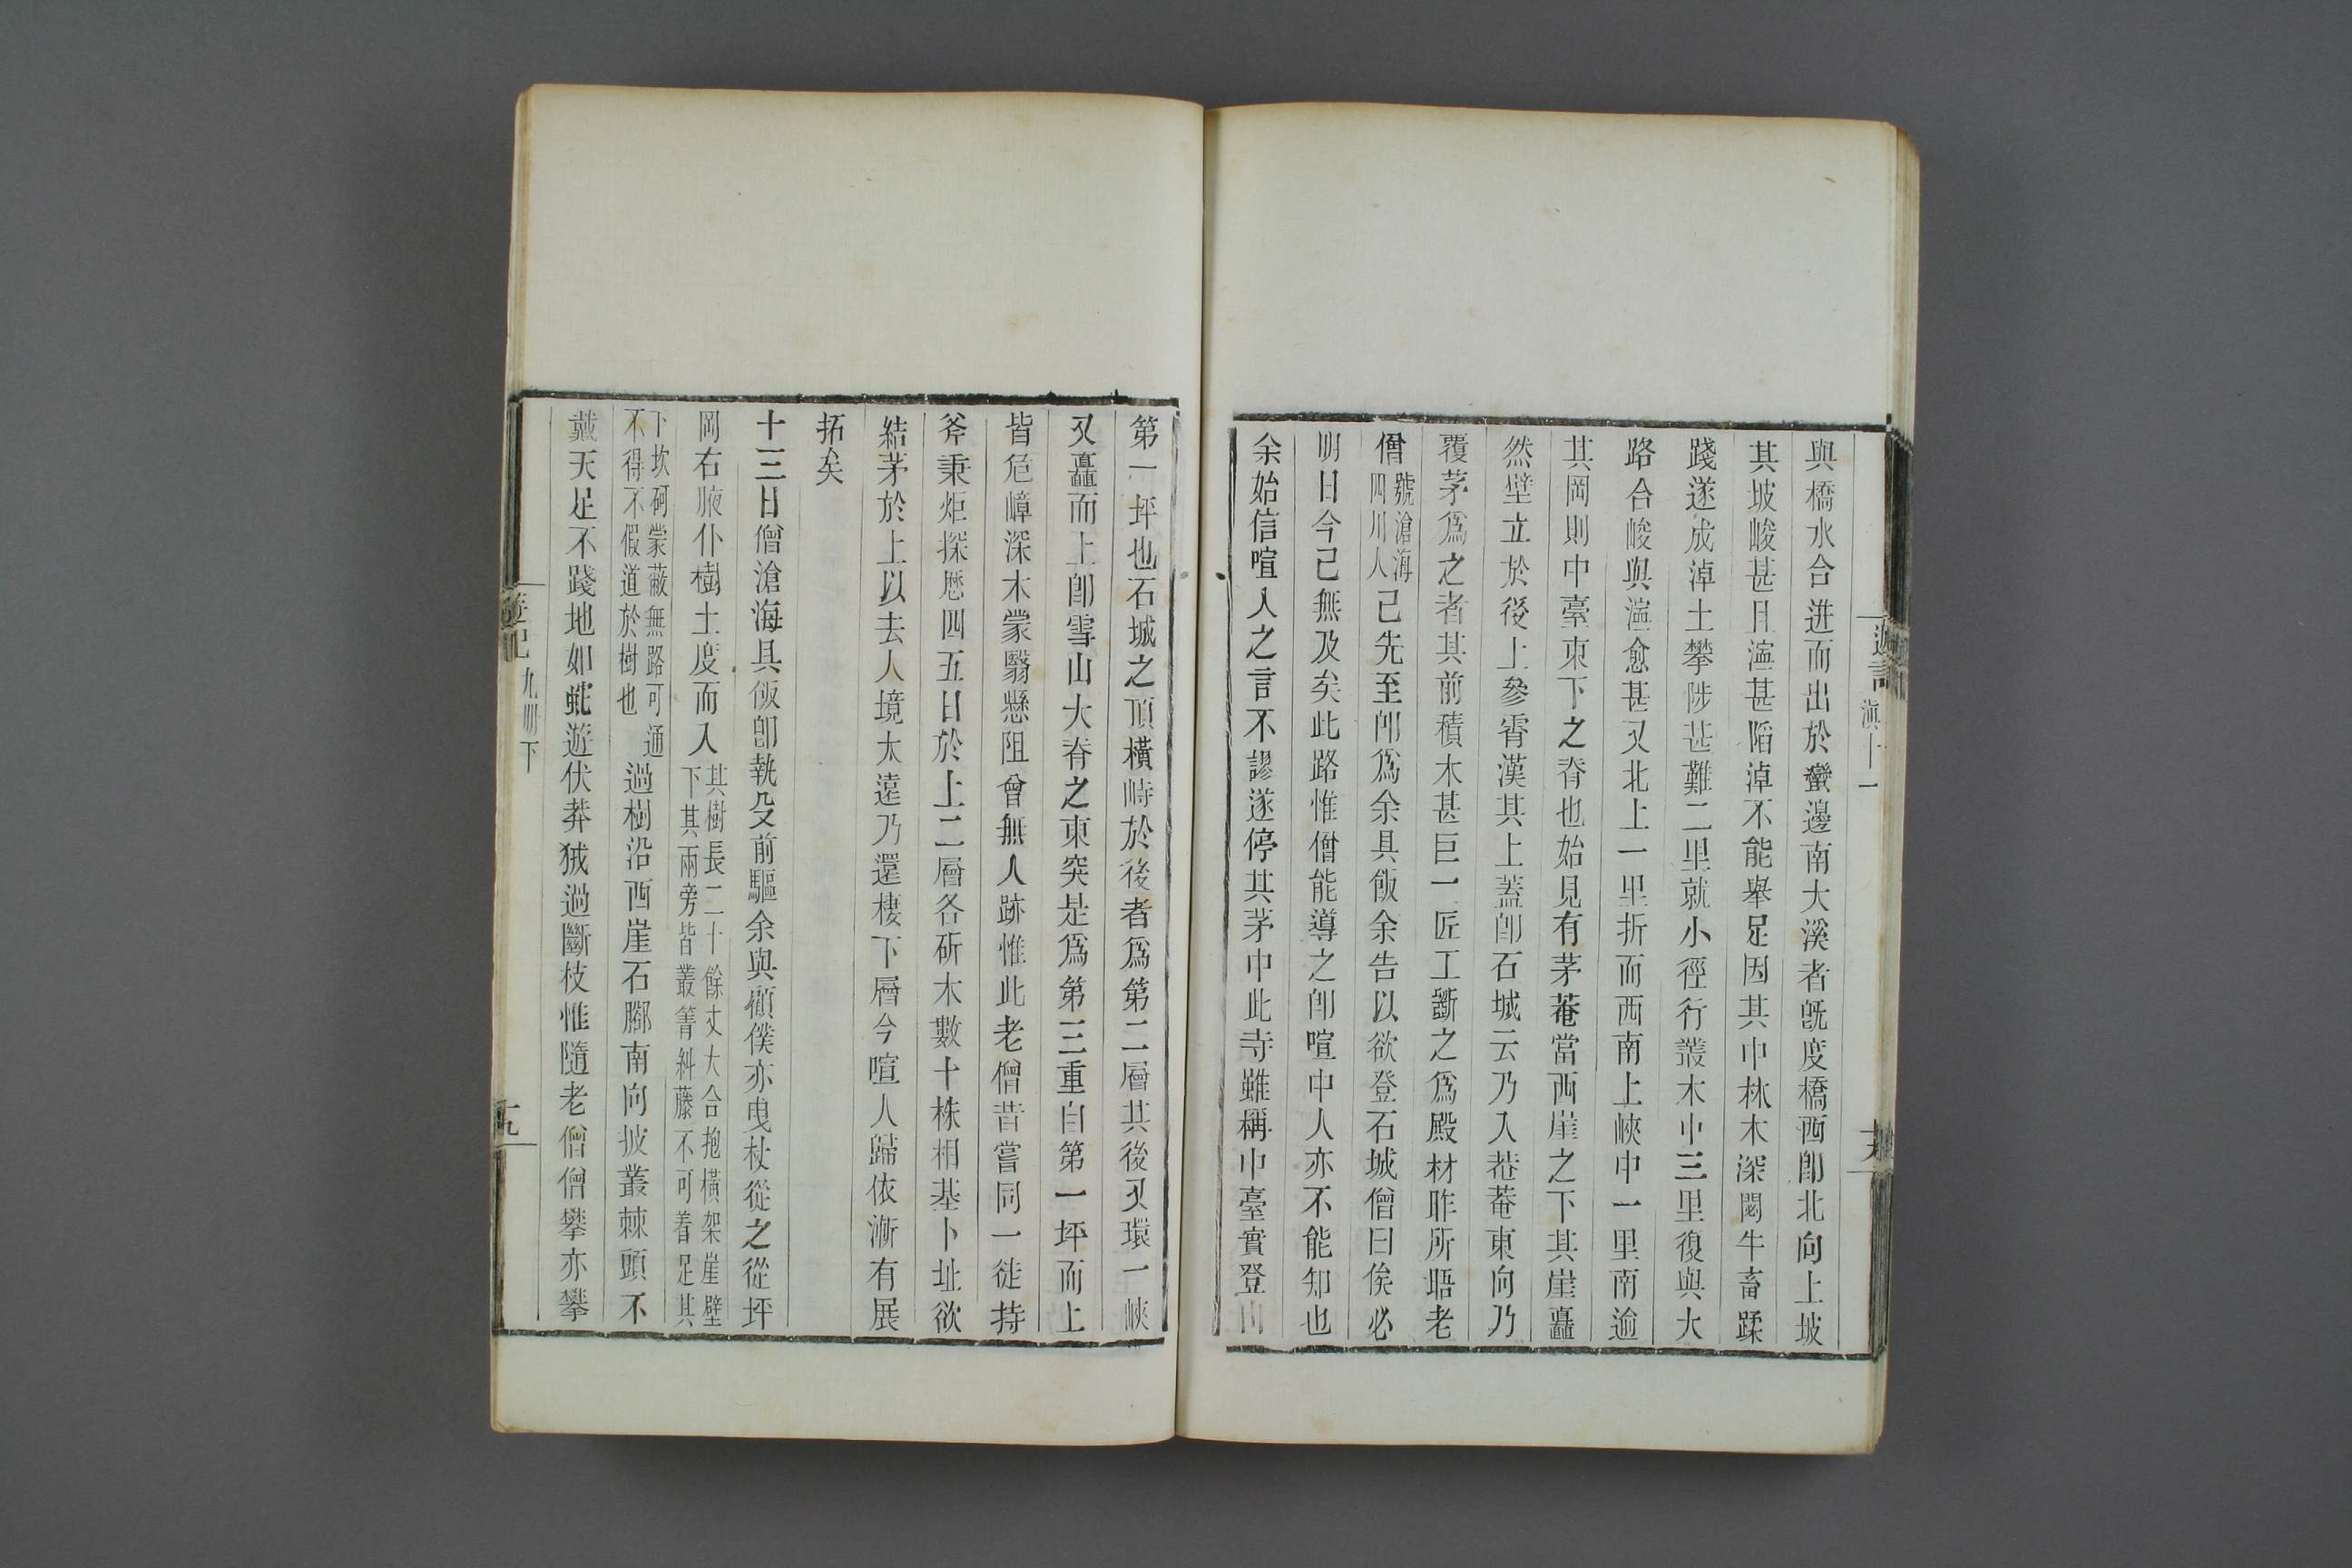 與橋水合迸而出於蠻邊南大溪者旣度橋西卽北向上坡
其坡峻甚且濘甚陷淖不能舉足因其中林木深閟牛畜蹂
踐遂成淖土攀陟甚難二里就小徑行叢木中三里復與大
路合峻與濘愈甚又北上一里折而西南上峽中一里南逾
其岡則中臺東下之脊也始見有茅菴當西崖之下其崖矗
然壁立於後上參霄漢其上蓋卽石城云乃入菴菴東向乃
覆茅爲之者其前積木甚巨一匠工斵之爲殿材昨所晤老
僧號滄海四川人已先至卽爲余具飯余告以欲登石城僧曰俟必
明日今已無及矣此路惟僧能導之卽喧中人亦不能知也
余始信喧人之言不謬遂停其茅中此寺雖稱中臺實登山
第一坪也石城之頂橫峙於後者爲第二層其後又環一峽
又矗而上卽雪山大脊之東突是爲第三重自第一坪而上
皆危嶂深木蒙翳懸阻曾無人跡惟此老僧昔嘗同一徒持
斧秉炬探歷四五日於上二層各斫木數十株相基卜址欲
結茅於上以去人境太遠乃還棲下層今喧人歸依漸有展
拓矣
十三日僧滄海具飯卽執殳前驅余與顧僕亦曳杖從之從坪
岡右腋仆樹土度而入其樹長二十餘丈大合抱橫架崖壁下其兩旁皆叢箐糾藤不可着足其
下坎砢蒙蔽無路可通不得不假道於樹也過樹沿西崖石腳南向披叢棘頭不
戴天足不踐地如蛇遊伏莽狨過斷枝惟隨老僧僧攀亦攀
遊記 滇十一
遊記 九册下